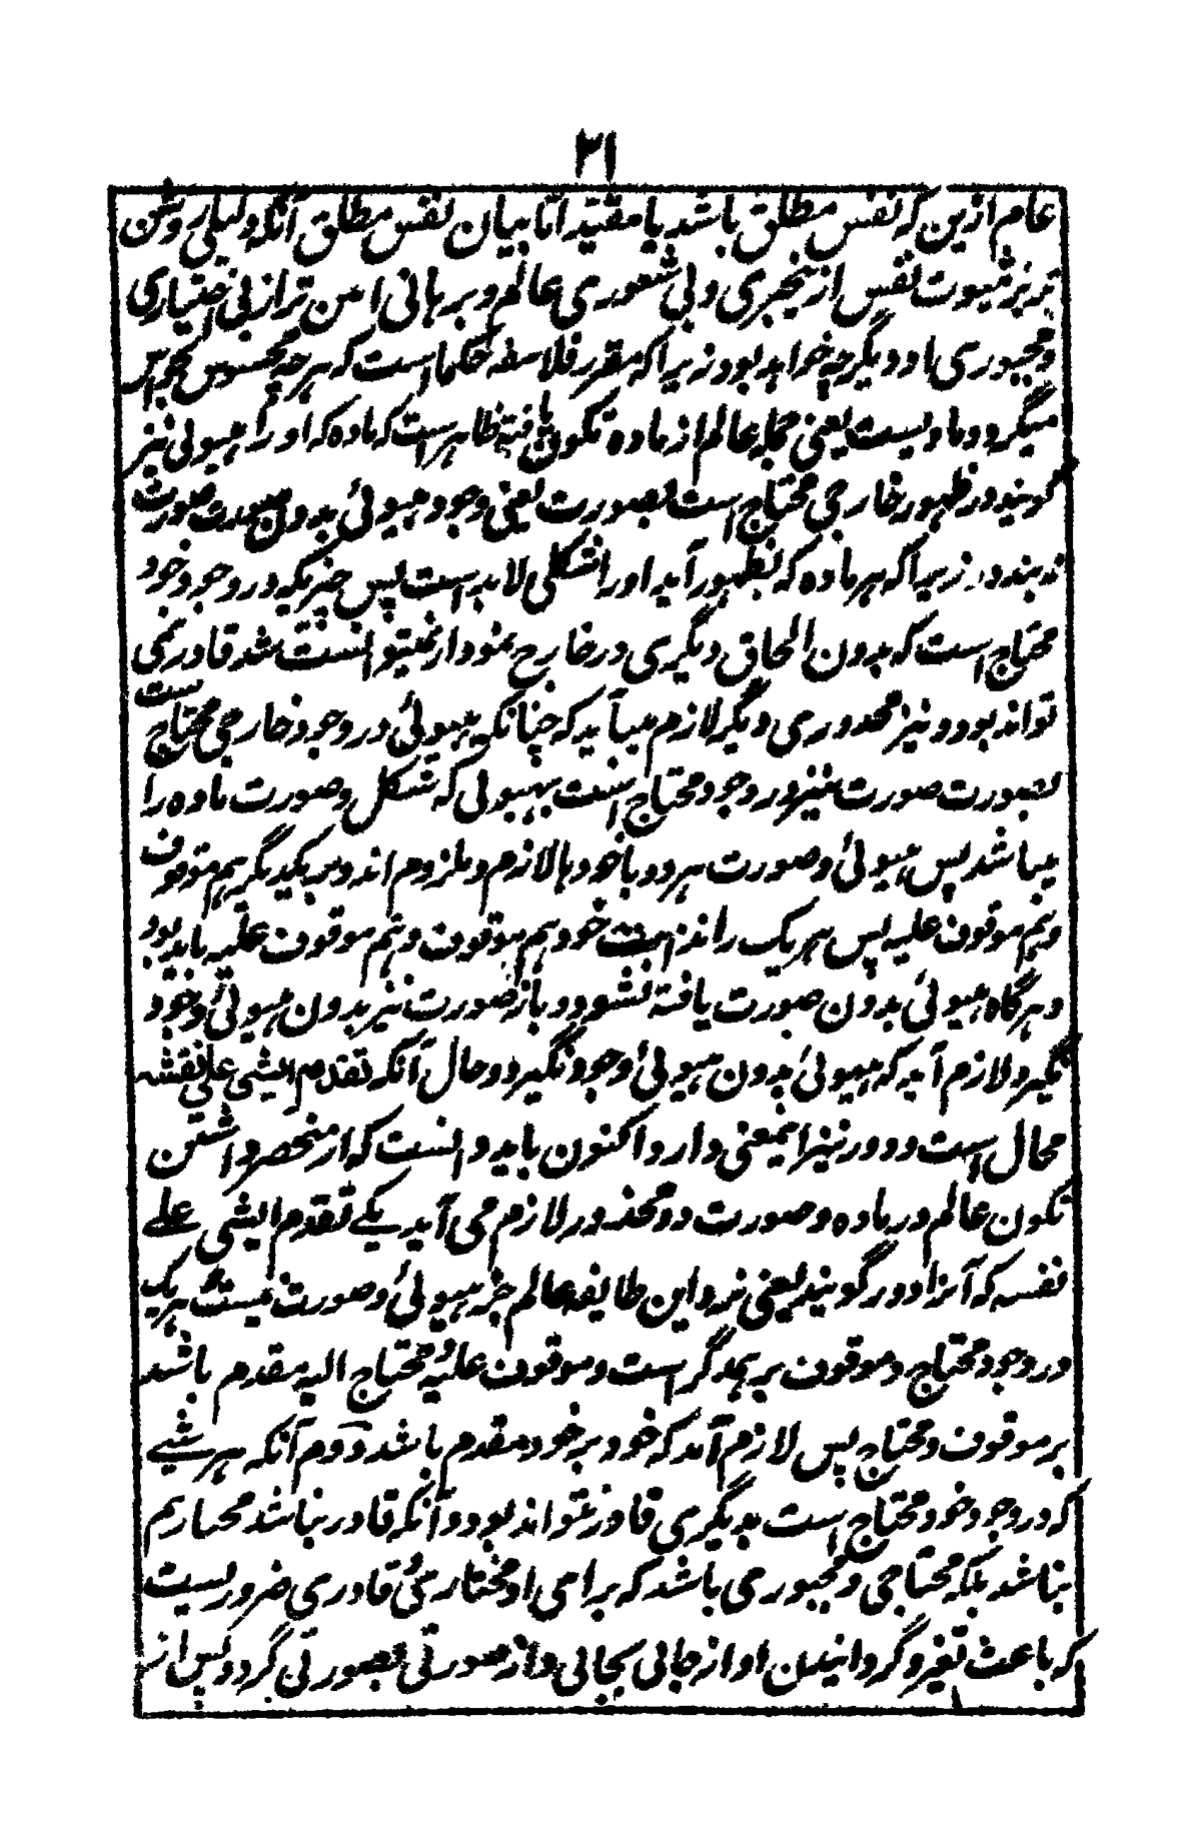 ۲۱
عام ازین که نفس مطلق باشد یا مقید اما بیان نفس مطلق آنکه دلیلی روشن
تر بر ثبوت نفس از بیخبری و بی شعوری عالم و برهانی امن تر از بی اختیاری
و مجبوری او دیگر چه خواهد بود زیرا که مقرر فلاسفه حکما است که هرچه محسوس بحواس
میگردد مادیست یعنی جمله عالم از ماده تکون یافته ظاهر است که ماده که او را هیولی نیز
گویند در ظهور خارجی محتاج است بصورت یعنی وجود هیولیٔ بدون صورت صورت
نه بندد زیرا که هر ماده که بظهور آید او را شکلی لابد است پس چیزیکه در وجود خود
محتاج است که بدون الحاق دیگری در خارج نمودار نمیتوانست شد قادر نمی
تواند بود و نیز محذوری دیگر لازم میآید که چنانکه هیولیٔ در وجود خارجی محتاج ست
بصورت صورت نیز در وجود محتاج است بهیولی که شکل و صورت ماده را
میباشد پس هیولیٔ و صورت هر دو با خودها لازم و ملزوم اند و بر یکدیگر هم موقوف
و هم موقوف علیه پس هر یک را نذات خود هم موقوف و هم موقوف علیه باید بود
و هرگاه هیولیٔ بدون صورت یافته نشود و باز صورت نیز بدون هیولیٔ وجود
نگیرد لازم آید که هیولیٔ بدون هیولیٔ وجود نگیرد و حال آنکه تقدم الشی علی نفسه
محال است و دور نیز اینمعنی دارد اکنون باید دانست که از منحصر داشتن
تکون عالم در ماده و صورت دو محذور لازم می آید یکے تقدم الشی علے
نفسه که آنرا دور گویند یعنی نزد این طایفه عالم جز هیولیٔ و صورت نیست و هر یک
در وجود محتاج و موقوف بر همدگر است و موقوف علیه و محتاج الیه مقدم باشد
بر موقوف و محتاج پس لازم آمد که خود بر خود مقدم باشد دوم آنکه هر شیے
که در وجود خود محتاج است بدیگری قادر نتواند بود و آنکه قادر نباشد مختار هم
نباشد بلکه محتاجی و مجبوری باشد که برای او مختاری و قادری ضروریست
که باعث تغیر و گردانیدن او از حالی بحالی و از صورتی بصورتی گردد پس از